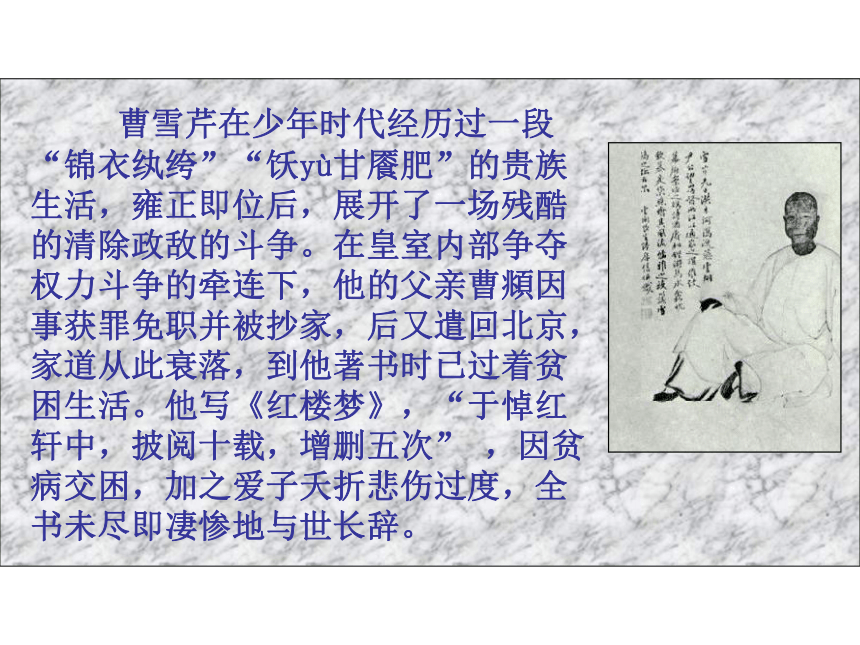 曹雪芹在少年时代经历过一段
“锦衣纨绔”“饫yù甘餍肥”的贵族
生活，雍正即位后，展开了一场残酷
的清除政敌的斗争。在皇室内部争夺
权力斗争的牵连下，他的父亲曹頫因
事获罪免职并被抄家，后又遣回北京，
家道从此衰落，到他著书时已过着贫
困生活。他写《红楼梦》，“于悼红
轩中，披阅十载，增删五次” ，因贫
病交困，加之爱子夭折悲伤过度，全
书未尽即凄惨地与世长辞。